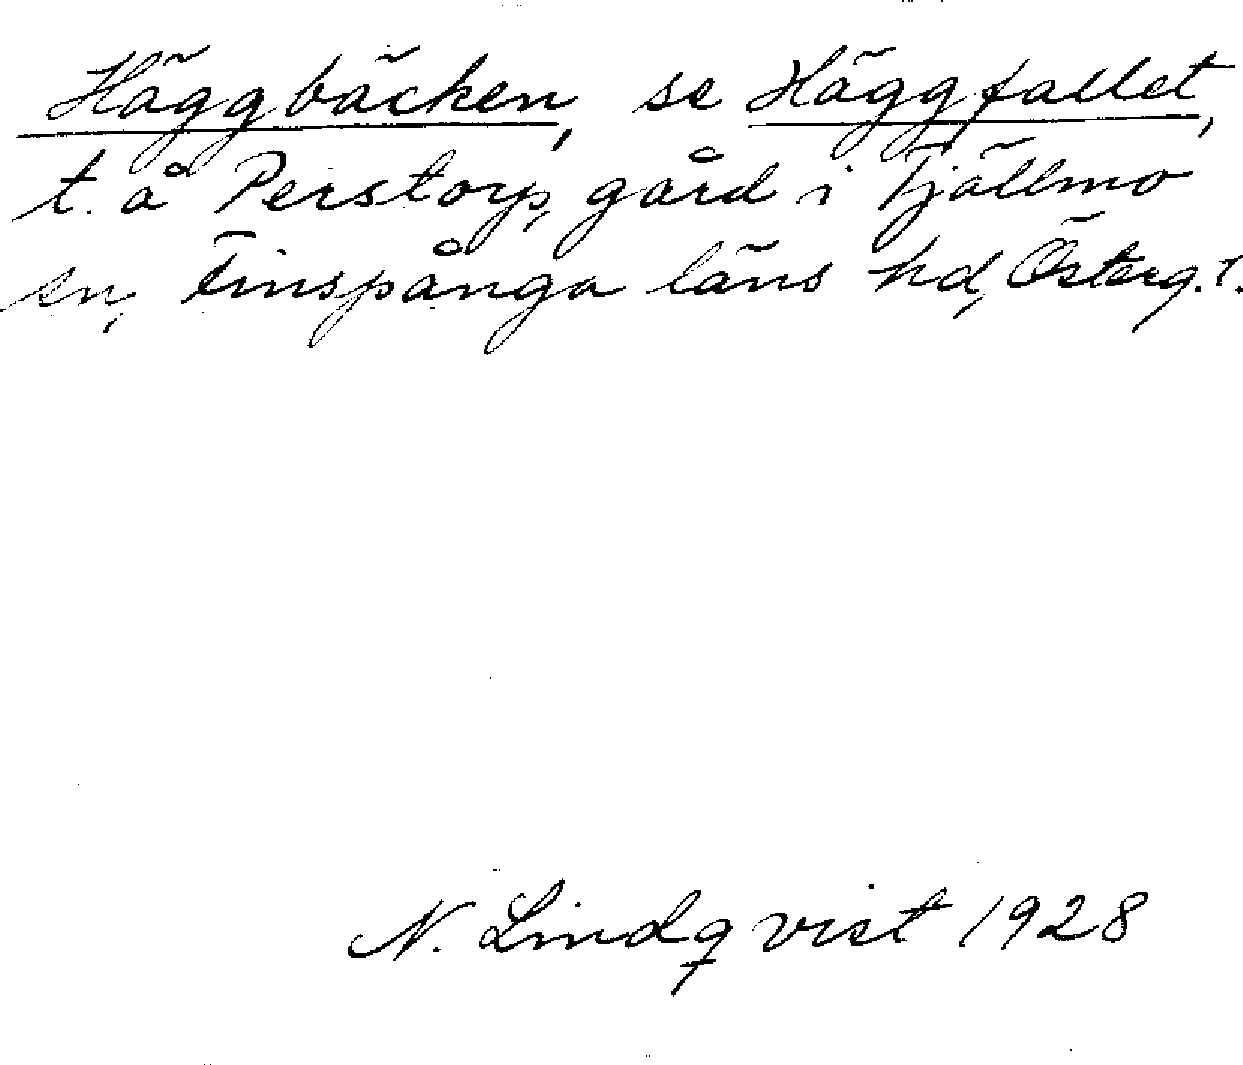 Häggbäcken, se Häggfallet,
t. å Perstorp, gård i Tjällmo
sn, Finspånga läns hd, Österg.
N. Lindqvist 1928